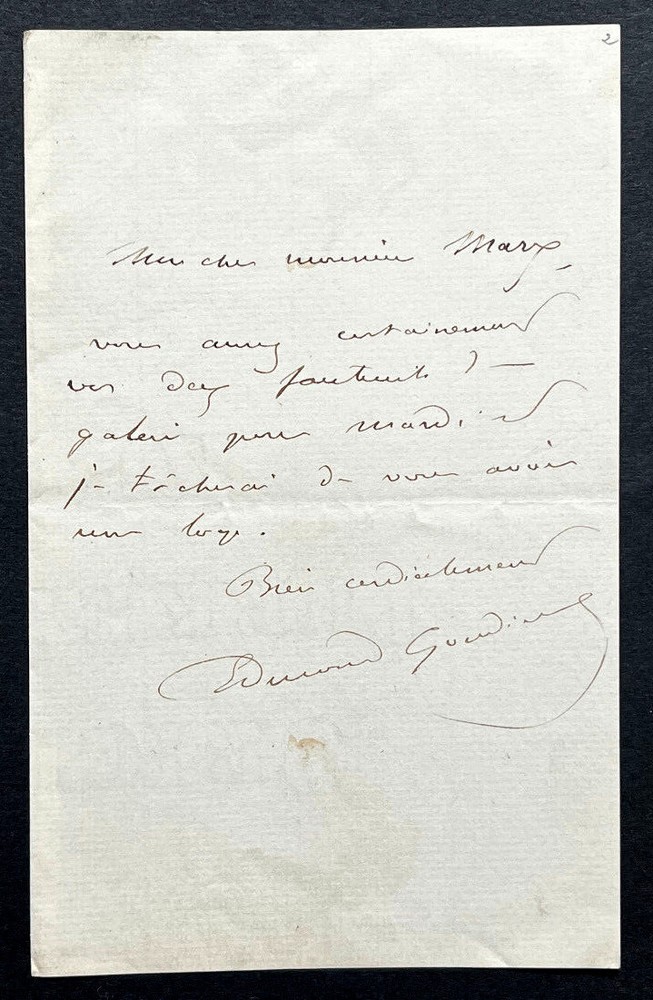 2
Mon cher monsieur Marx,
vous aurez certainement
vos deux fauteuils de
galerie pour mardi et
je tâcherai de vous avoir
une loge.
Bien cordialement
Edmond Gondinet